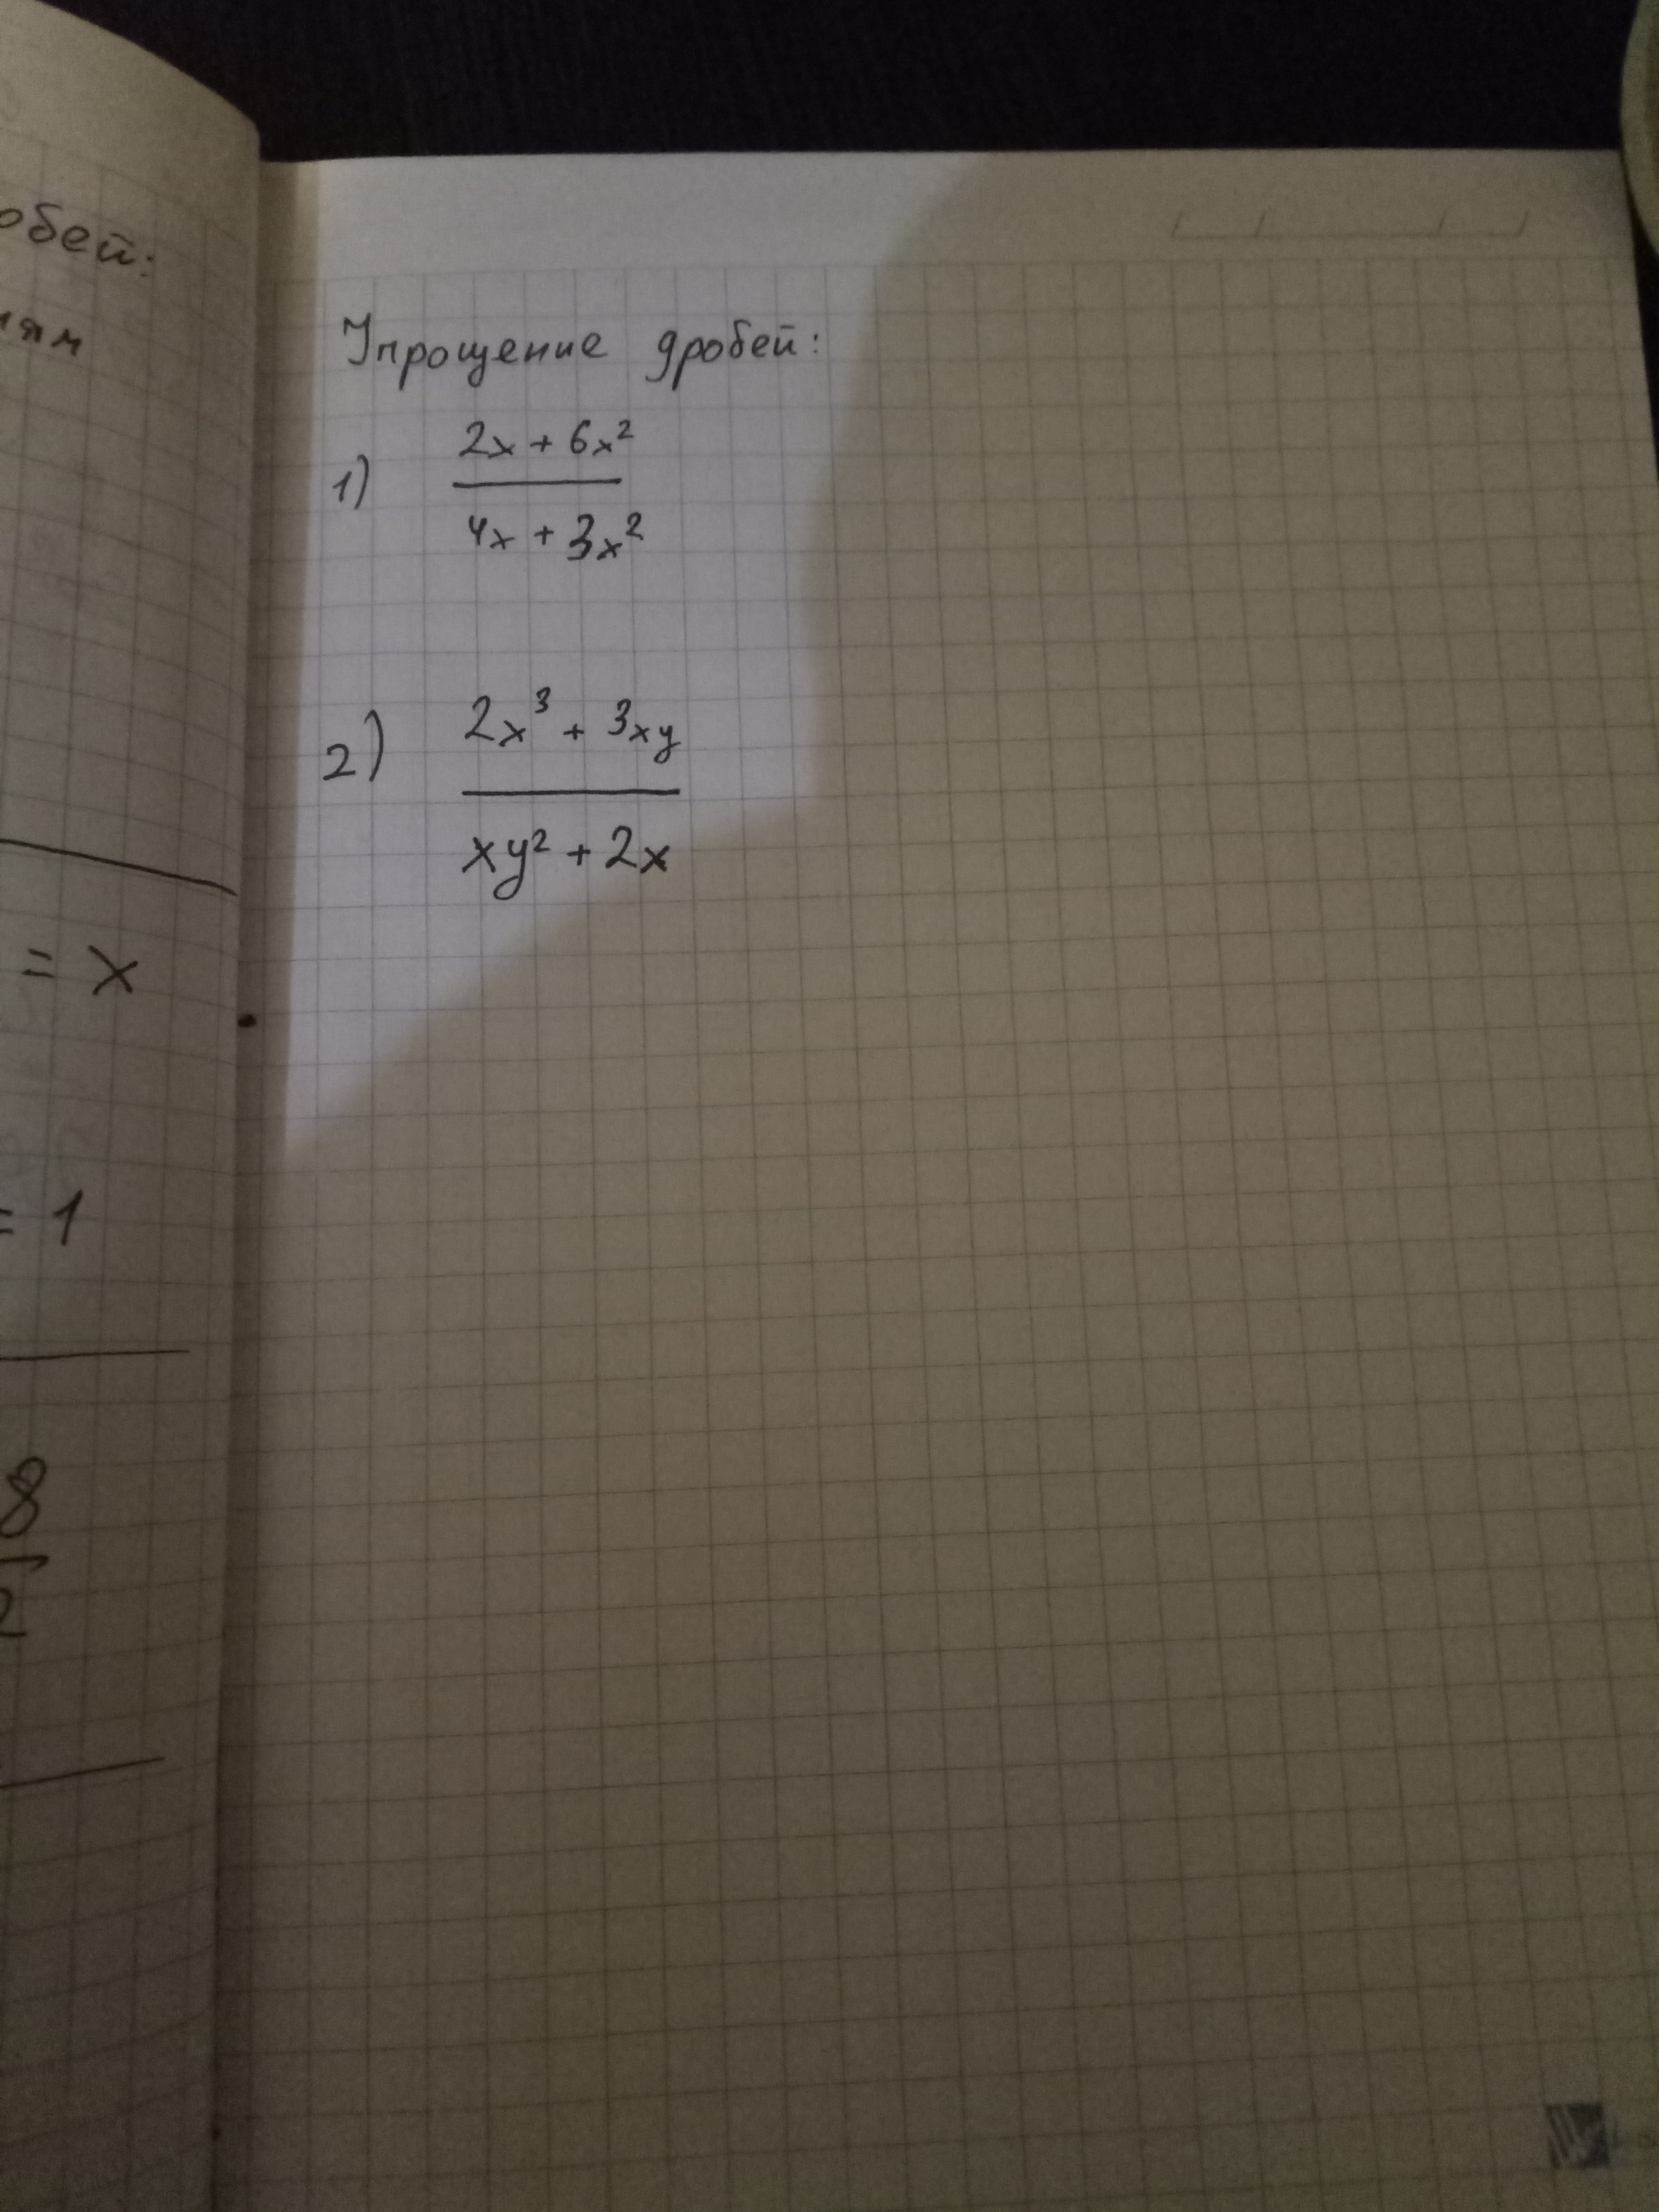 обей:
= x
= 1
8
2
Упрощение дробей:
1) 2x + 6x²
4x + 3x²
2) 2x³ + 3xy
xy² + 2x